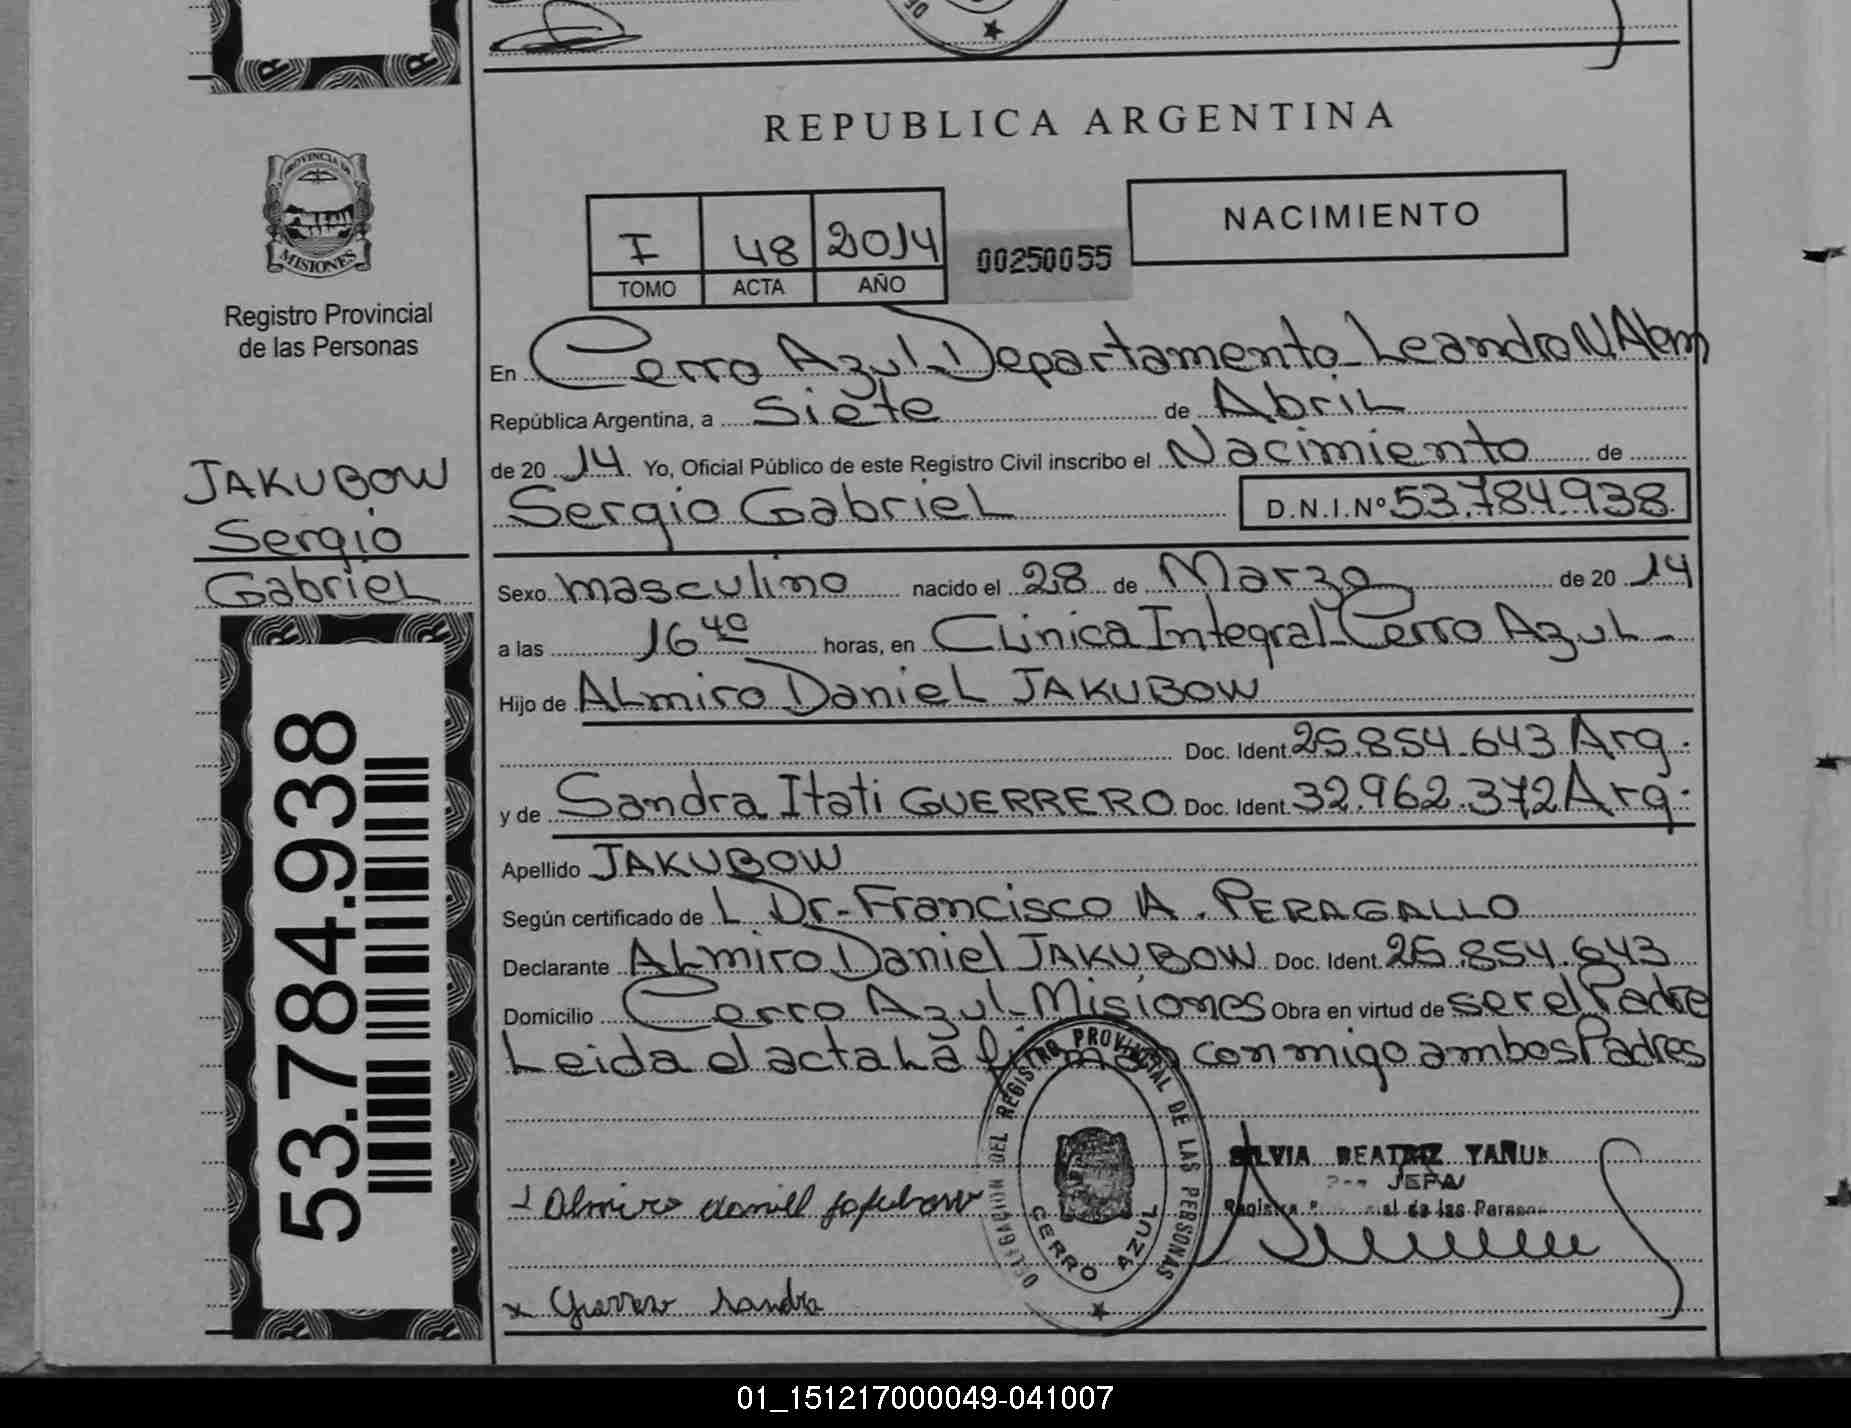 REPUBLICA ARGENTINA
PROVINCIA DE
MISIONES
Registro Provincial
de las Personas
I 48 2014
TOMO ACTA AÑO
00250055
NACIMIENTO
En Cerro Azul-Departamento Leandro N Alem
República Argentina, a siete de Abril
de 2014 Yo, Oficial Público de este Registro Civil inscribo el Nacimiento de
JAKUBOW
Sergio
Gabriel
Sergio Gabriel D.N.I.Nº 53.784.938
Sexo masculino nacido el 28 de Marzo de 2014
a las 16 40 horas, en Clinica Integral-Cerro Azul-
Hijo de Almiro Daniel JAKUBOW
Doc. Ident. 25.854.643 Arg.
y de Sandra Itati GUERRERO Doc. Ident. 32.962.372 Arg.
Apellido JAKUBOW
Según certificado de L Dr-Francisco A. PERAGALLO
Declarante Almiro Daniel JAKUBOW Doc. Ident. 25.854.643
Domicilio Cerro Azul-Misiones Obra en virtud de ser el Padre
Leida el acta la firman conmigo ambos Padres
53.784.938
DELEGACION DEL REGISTRO PROVINCIAL DE LAS PERSONAS
CERRO AZUL
SILVIA BEATRIZ
JEFA
de las
Almiro daniel
x Guerrero Sandra
01_151217000049-041007